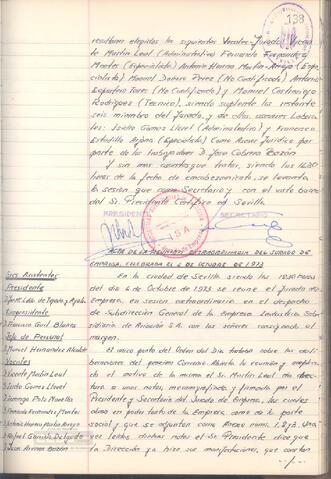 138
resultaron elegidos los siguientes Vocales-Jurado: Vicente
Martin Leal (Administrativo) Fernando Fernandez
Montes (Especialista) Antonio Hierro Martin-Arroyo (Especialista)
Manuel Perez (No Cualificado) Antonio
(No Cualificado) y Manuel
Rodriguez (Tecnico), siendo suplente los restante
seis miembro del Jurado, y de dos asesores laborales:
Isidro Gomez Llovet (Administrativo) y Francisco
(Especialista) Como Asesor Juridico por
parte de los trabajadores D. Jose Cabrera Bazán
Y sin mas asuntos que tratar, siendo las 16,30
horas de la fecha de encabezamiento, se levanta
la sesión que como Secretario y con el visto bueno
del Sr. Presidente Certifico en Sevilla.
PRESIDENTE
SECRETARIO
ISA
ACTA DE LA REUNION EXTRAORDINARIA DEL JURADO DE
EMPRESA, CELEBRADA EL 6 DE OCTUBRE DE 1973
Sres Asistentes
Presidente
Vicepresidente
D. Francisco Guil Blanes
Jefe de Personal
D. Manuel Hernandez
Vocales
D. Vicente Martin Leal
D. Isidro Gomez Llovet
D. Domingo Polo
D. Fernando Fernandez Montes
D. Antonio Hierro Martin Arroyo
D. Rafael Delgado
D. Jose Bazán
En la ciudad de Sevilla siendo las horas
del dia 6 de Octubre de 1973 se reune el Jurado de
Empresa, en sesión extraordinaria en el despacho
de Subdirección General de la Empresa Industria Subsidiaria
de Aviación S.A. con los señores consignado al
margen.
El unico punto del Orden del Dia trataba sobre las deliberaciones
del proximo Convenio. Abierta la reunión y explicado
el motivo de la misma el Sr. Martin Leal da lectura
a unas notas, mecanografiadas y firmada por el
Presidente y Secretario del Jurado de Empresa, las cuales
obran en poder tanto de la Empresa como de la parte
social y que se adjuntan como Anexo num. 1, 2 y 3. Una
vez leidas dichas notas el Sr. Presidente dice que
la Dirección ya hizo sus manifestaciones, que constan